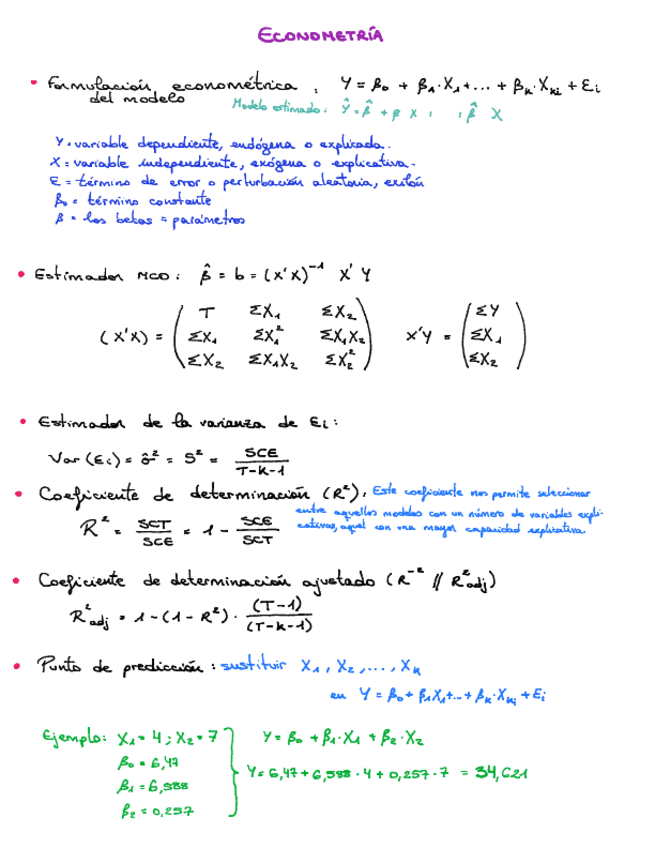 ECONOMETRÍA
• Formulación econométrica: Y = β₀ + β₁·X₁+...+ βₖ·Xₖᵢ + Ɛᵢ
del modelo
Modelo estimado: Ŷ = β̂ + β X , , β̂ X
Y = variable dependiente, endógena o explicada.
X = variable independiente, exógena o explicativa.
Ɛ = término de error o perturbación aleatoria,
β₀ = término constante
β = los betas = parámetros
• Estimador MCO: β̂ = b = (X'X)⁻¹ X'Y
(X'X) = ( T ΣX₁ ΣX₂ X'Y = ( ΣY
ΣX₁ ΣX₁² ΣX₁X₂ ΣX₁
ΣX₂ ΣX₁X₂ ΣX₂² ) ΣX₂ )
• Estimador de la varianza de Ɛᵢ:
Var (Ɛᵢ) = σ̂² = S² = SCE / T-K-1
• Coeficiente de determinación (R²): Este coeficiente nos permite seleccionar
entre aquellos modelos con un número de variables expli-
cativas, aquel con una mayor capacidad explicativa.
R² = SCT / SCE = 1 - SCE / SCT
• Coeficiente de determinación ajustado (R⁻² // R²adj)
R²adj = 1-(1-R²) · (T-1) / (T-K-1)
• Punto de predicción: sustituir X₁, X₂, ..., Xₖ
en Y = β₀ + β₁X₁+...+ βₖ·Xₖᵢ + Ɛᵢ
Ejemplo: X₁ = 4 ; X₂ = 7 Y = β₀ + β₁·X₁ + β₂·X₂
β₀ = 6,47
Y = 6,47 + 6,588 · 4 + 0,257 · 7 = 34,621
β₁ = 6,588
β₂ = 0,257